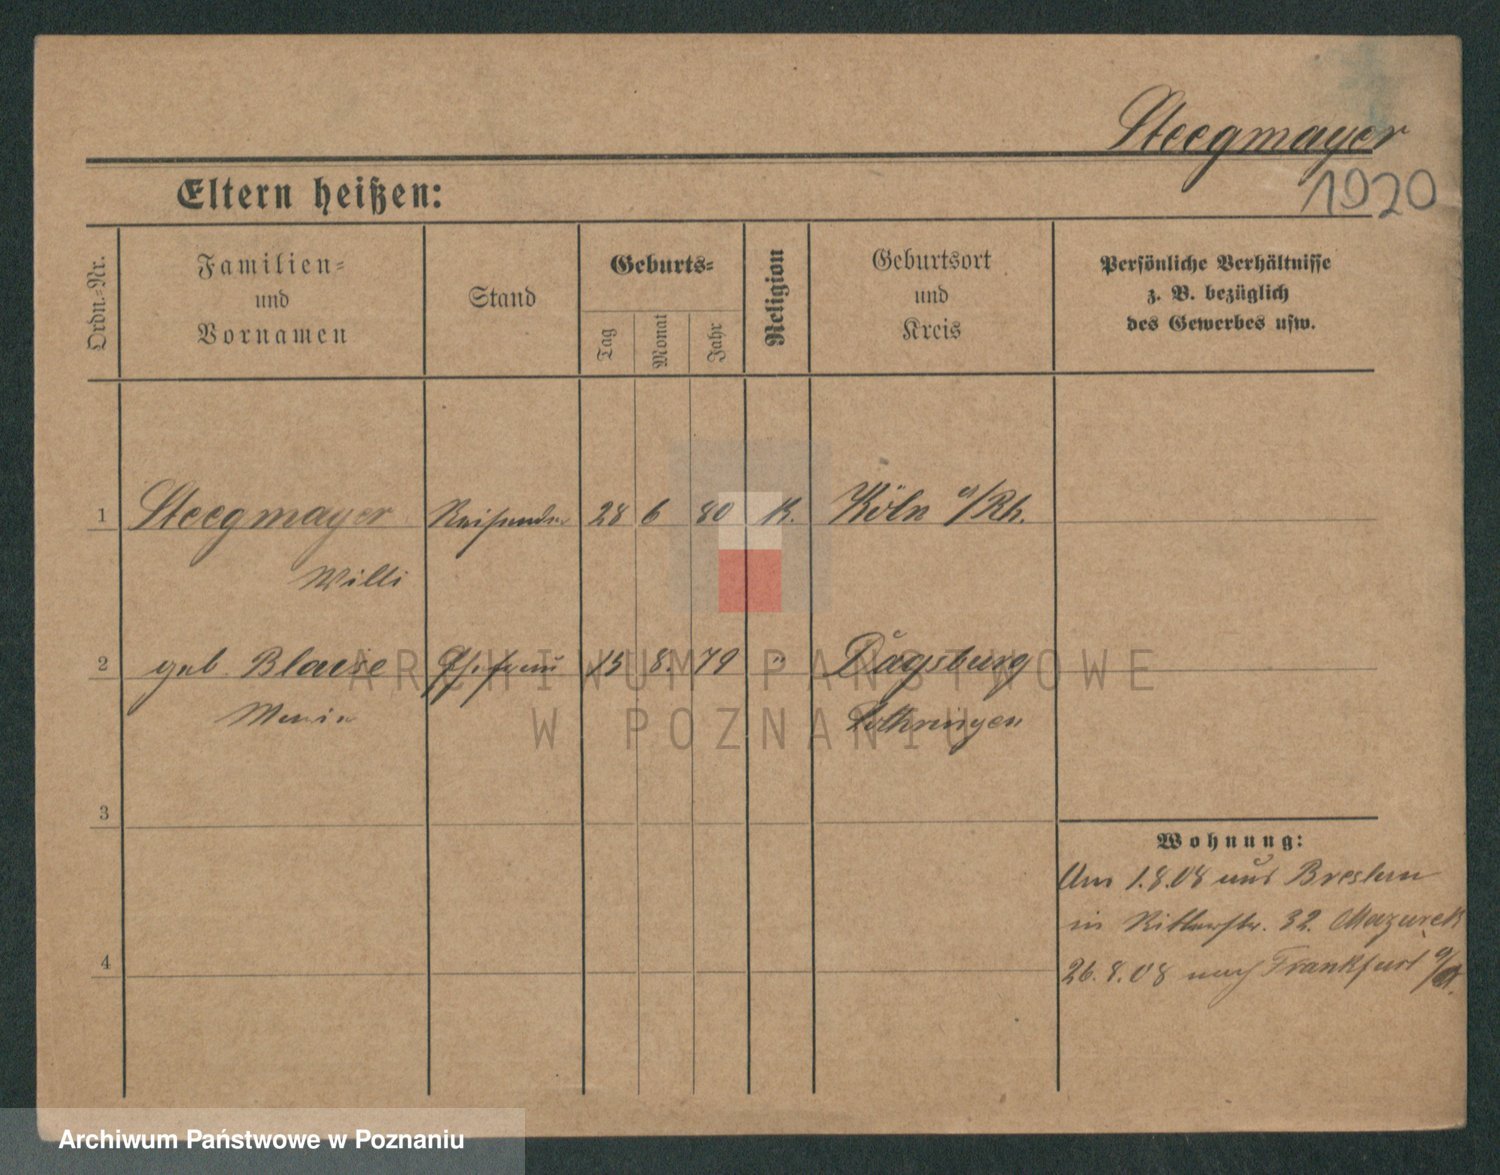 Steegmayer
1920
Eltern heißen:
Ordn.-Nr.
Familien-
und
Vornamen
Stand
Geburts-
Tag
Monat
Jahr
Religion
Geburtsort
und
Kreis
Persönliche Verhältnisse
z. B. bezüglich
des Gewerbes usw.
1 Steegmayer Reisender 28 6 80 K. Köln a/Rh.
Willi
2 geb. Blaise Ehefrau 15 8. 79 " Dagsburg
Maria Lothringen
ARCHIWUM PAŃSTWOWE
W POZNANIU
3
Wohnung:
Am 1.8.08 aus Breslau
in Ritterstr. 32. Mazurek
4
26.8.08 nach Frankfurt a/O.
Archiwum Państwowe w Poznaniu